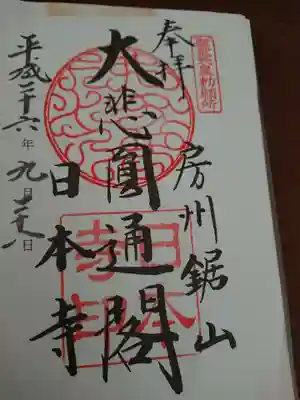 奉拝
房州鋸山
大悲圓通閣
日本寺
平成二十六年九月二十八日